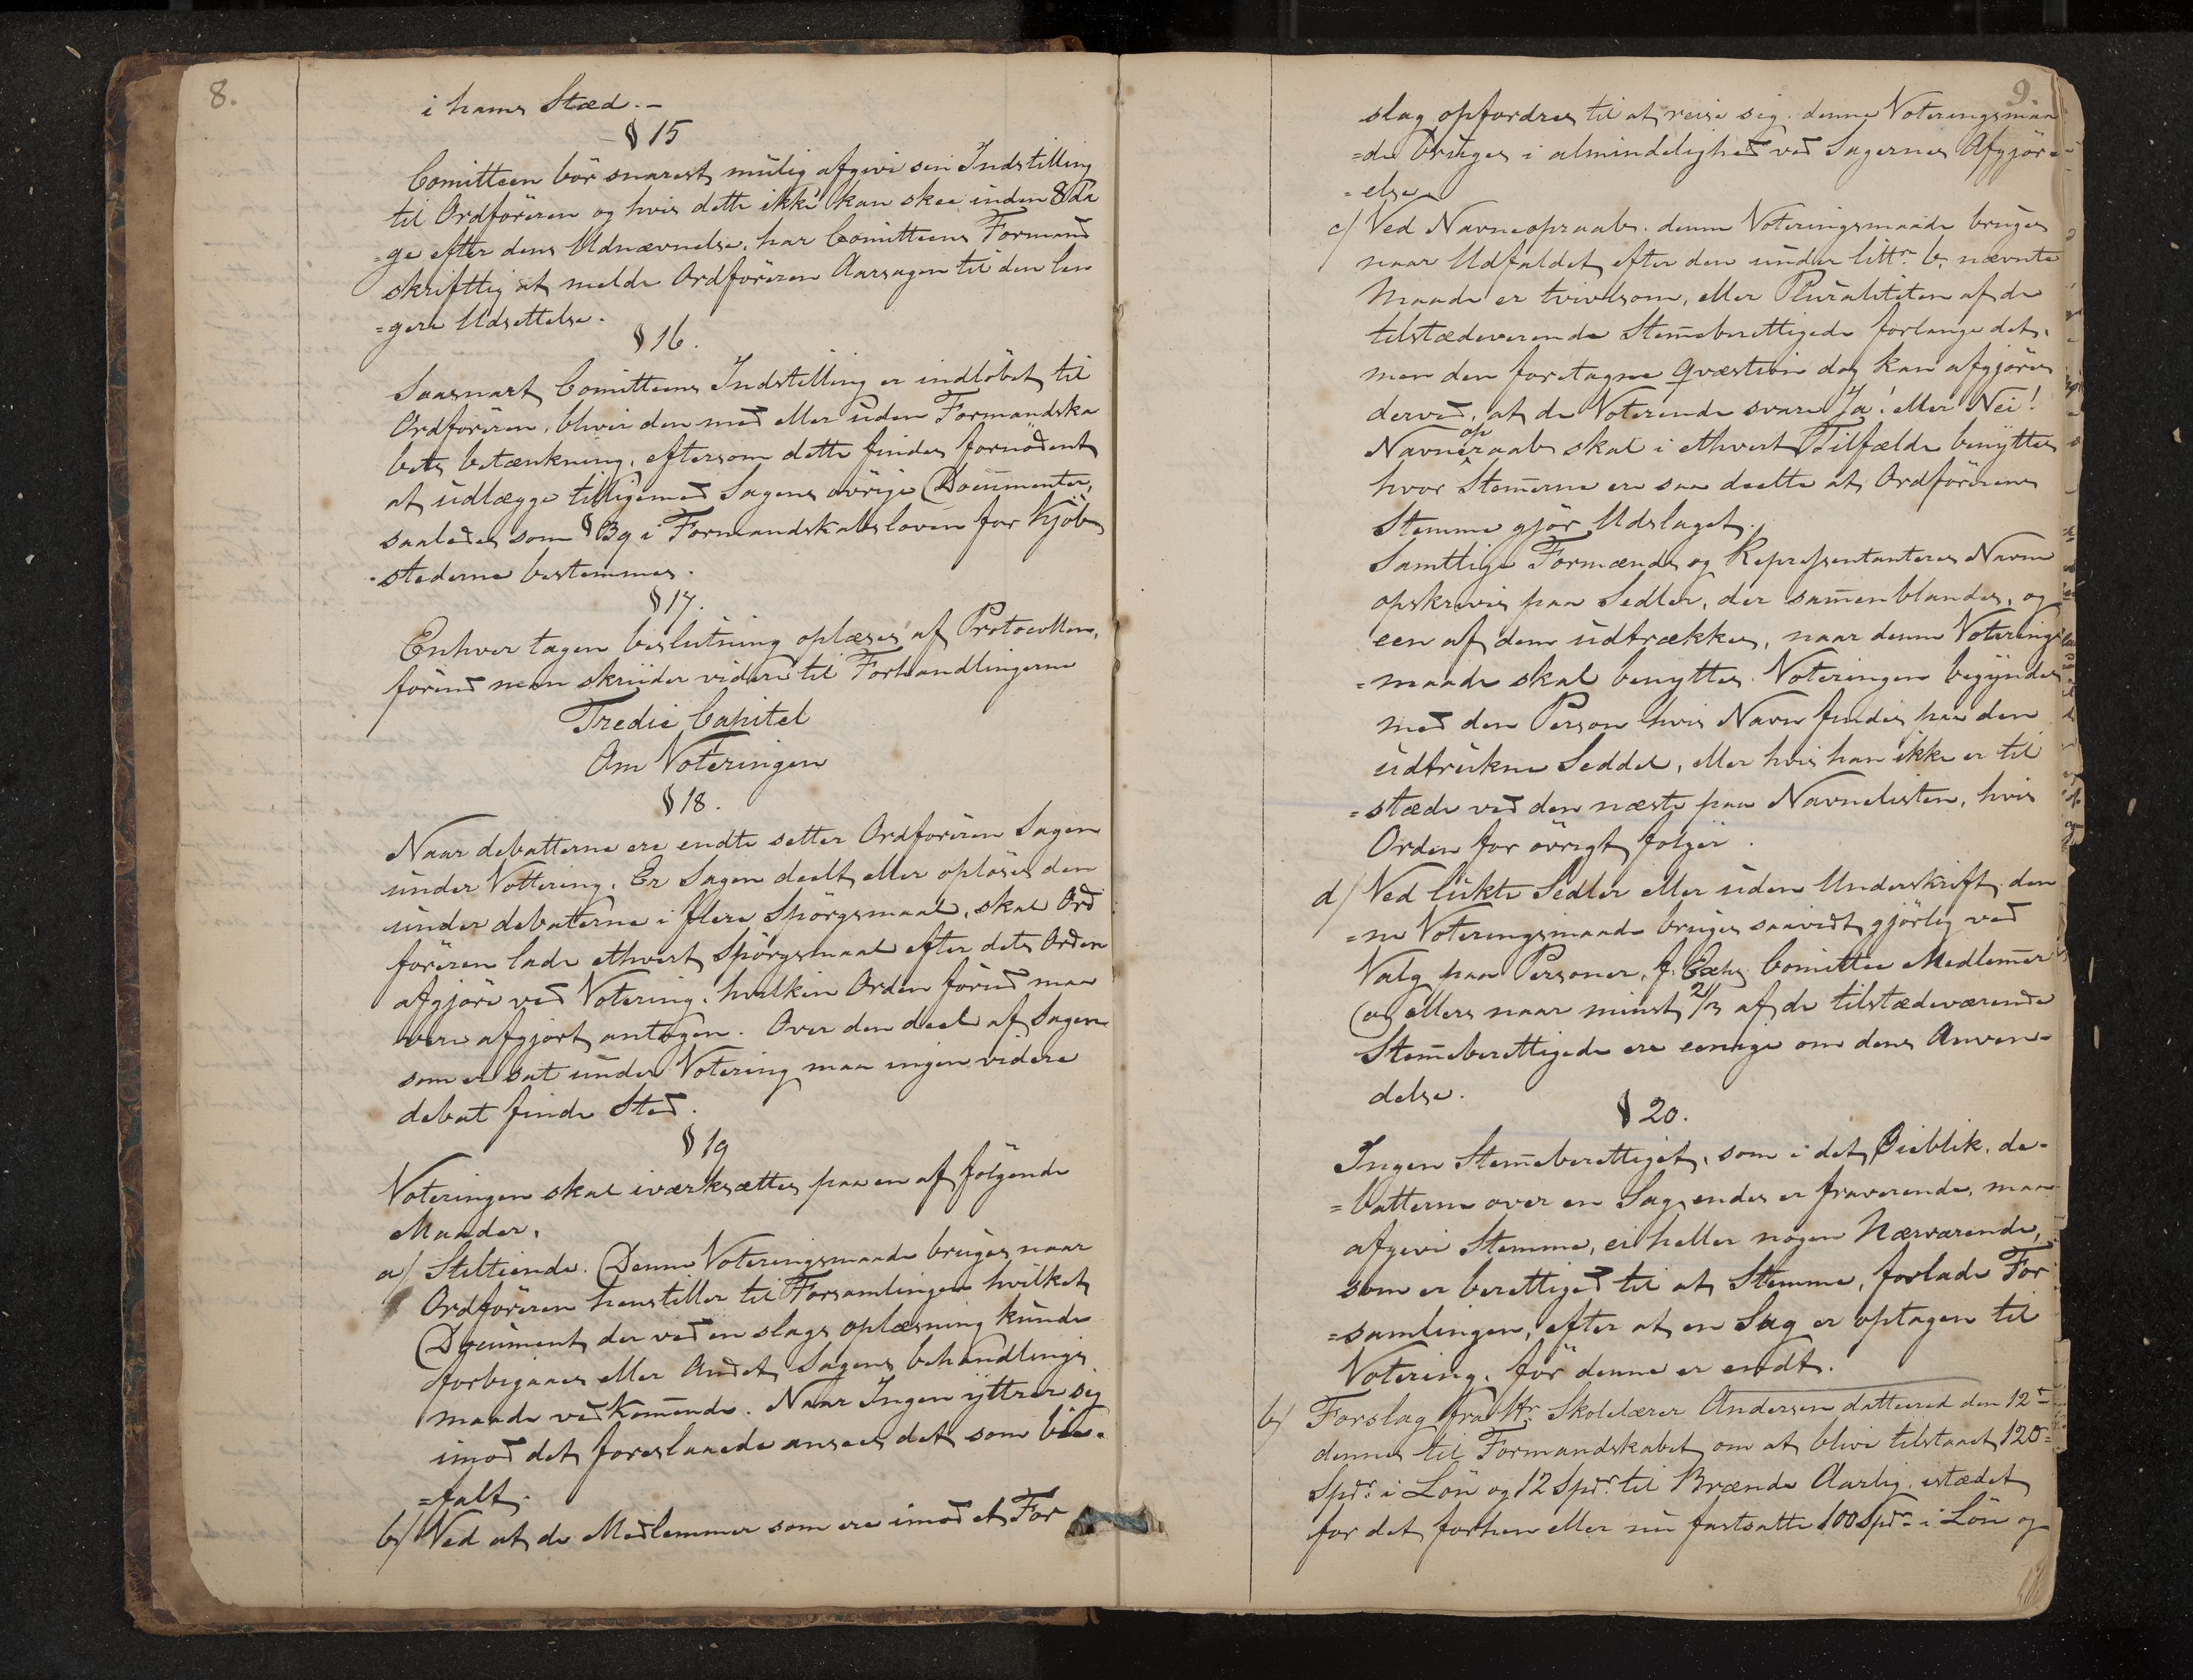 8.
i hans Stæd.-
§ 15
Comitteen bör snarest mulig afgive sin Indstilling
til Ordföreren og hvis dette ikke kan skee inden 8 Da
=ge efter dens Udnævnelse, har Comitteens Formand
skriftlig at melde Ordföreren Aarsagen til den len
=gere Udsettelse.
§ 16.
Saasnart Comitteens Indstilling er indlöbet til
Ordföreren, bliver den med eller uden Formandska
bets betænkning, eftersom dette findes fornödent
at udlægge tilligemed Sagens övrige Documenter,
saaledes som § 39 i Formandskabsloven for Kjöb
stederne bestemmes.
§ 17.
Enhver tagen beslutning oplæses af Protocollen,
forend man skrider videre til Forhandlingerne
Tredie Capitel
Om Voteringen
§ 18.
Naar debatterne ere endte setter Ordföreren Sagen
under Vottering. Er Sagen deelt eller oplöses den
under debatterne i flere Spörgsmaal, skal Ord
föreren lade ethvert Spörgsmaal efter dets Orden
afgjöre ved Votering, hvilken Orden forud maa
være afgjort antagen. Over den deel af Sagen
som er sat under Votering maa ingen videre
debat finde Sted.
§ 19
Voteringen skal iværksættes paa en af fölgende
Maader.
a/ Stiltiende. Denne Voteringsmaade bruges naar
Ordföreren henstiller til Forsamlingen hvilket
Document der ved en slags oplæsning kunde
forbigaaes eller Andet Sagens behandlings
maade vedkomende. Naar Ingen yttrer sig
imod det foreslaaede ansees det som bi-
=falt.
b/ Ved at de Medlemmer som ere imod et For
9.
slag opfordres til at reise sig. denne Voteringsmaa
=de bruges i almindelighed ved Sagernes Afgjör=
=else.
c/ Ved Navneopraab. denne Voteringsmaade bruges
naar Udfaldet efter den under littr. b. nævnte
Maade er tvivlsom, eller Pluraliteten af de
tilstædeverende Stemeberettigede forlange det,
men den foretagne Qvæstion dog kan afgjöres
derved, at de Voterende svare Ja! eller Nei!
Navneopraab skal i ethvert Tilfælde benyttes
hvor Stemerne ere saa deelte at Ordförerens
Stemme gjör Udslaget.
Samtlige Formænds og Repræsentanteres Navne
opskrives paa Sedler, der samenblandes, og
een af dem udtrækkes, naar denne Voterings
=maade skal benyttes. Voteringen begyndes
med den Person hvis Navn findes paa den
udtrukne Seddel, eller hvis han ikke er til
=stæde ved den næste paa Navnelisten, hvis
Orden for övrigt fölges.
d/ Ved lukte Sedler eller uden Underskrift, den
=ne Voteringsmaade bruges saavidt gjörlig ved
Valg paa Personer, f. Ex. Comittee Medlemer
og ellers naar minst 2/3 af de tilstædeværende
Stemeberettigede ere eenige om dens Anven-
delse.
§ 20.
Ingen Stemeberettiget, som i det Øieblik, de-
=batterne over en Sag endes er fraverende, maa
afgive Stemme, ei heller nogen Nærværende,
som er berettiged til at Stemme, forlade For
=samlingen, efter at en Sag er optagen til
Votering, för denne er endt.
b/ Forslag fra Hr. Skolelærer Andersen datteret den 12te
dennes til Formandskabet om at blive tilstaaet 120=
Spdr. i Lön og 12 Spdr. til Brænde Aarlig, istædet
for det forhen eller nu fastsatte 100 Spdr. i Lön og